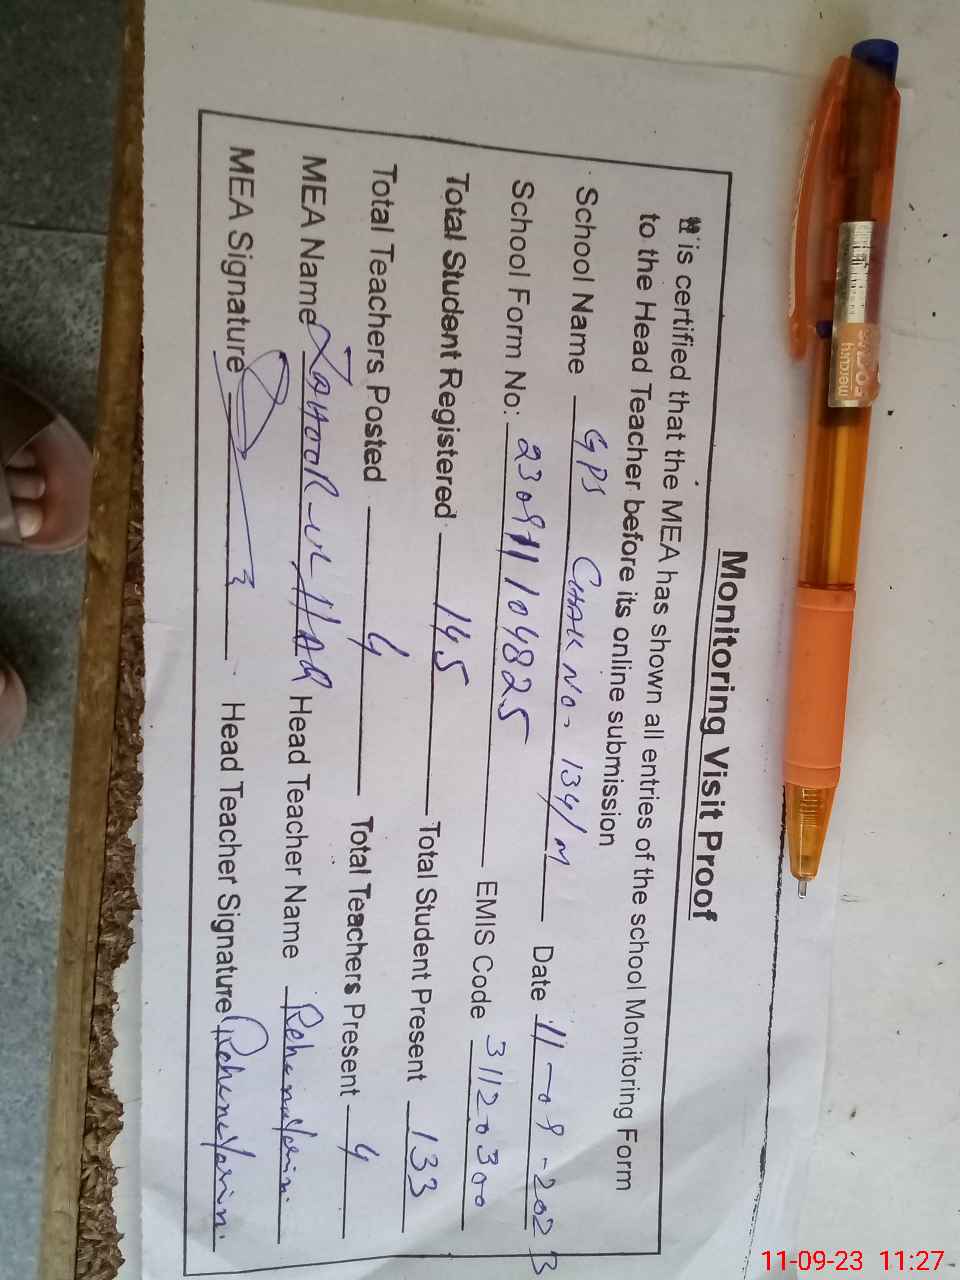 Monitoring Visit Proof
It is certified that the MEA has shown all entries of the school Monitoring Form
to the Head Teacher before its online submission
School Name GPS CHAK No. 134/M Date 11-09-2023
School Form No: 230911104825 EMIS Code 31120300
Total Student Registered 145 Total Student Present 133
Total Teachers Posted 4 Total Teachers Present 4
MEA Name ZAHOOR-UL-HAQ Head Teacher Name
MEA Signature Head Teacher Signature
mercury
11-09-23 11:27